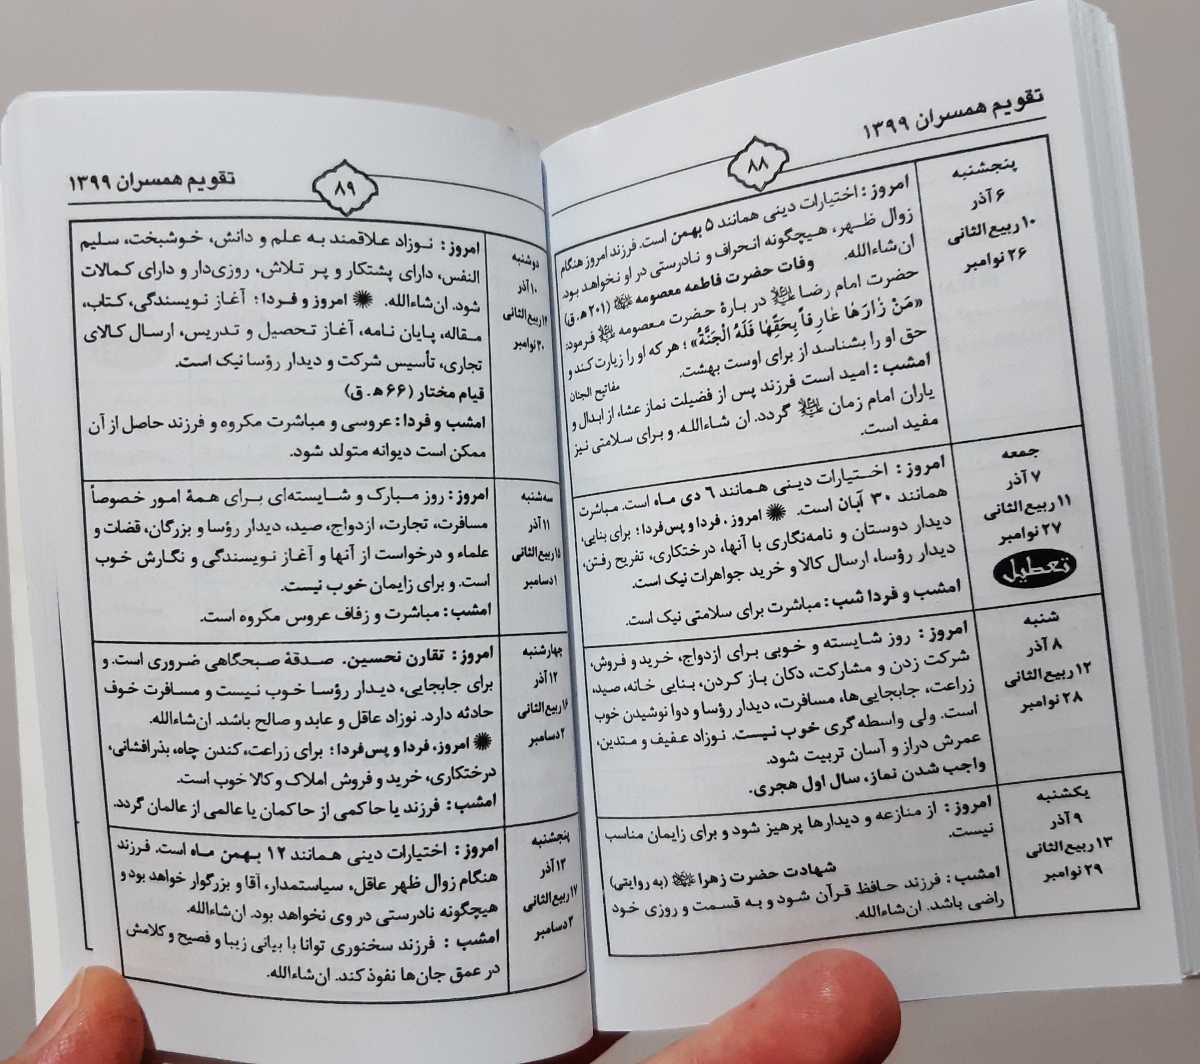 تقویم همسران ۱۳۹۹
۸۸
پنجشنبه
۶ آذر
۱۰ ربیع‌الثانی
۲۶ نوامبر
امروز : اختیارات دینی همانند ۵ بهمن است. فرزند امروز هنگام
زوال ظهر، هیچگونه انحراف و نادرستی در او نخواهد بود.
ان‌شاءالله.
وفات حضرت فاطمه معصومه (۲۰۱ ه‍.ق)
حضرت امام رضا در بارهٔ حضرت معصومه فرمود:
«مَنْ زَارَهَا عَارِفاً بِحَقِّهَا فَلَهُ الْجَنَّةُ» ؛ هر که او را زیارت کند و
حق او را بشناسد از برای اوست بهشت.
مفاتیح الجنان
امشب : امید است فرزند پس از فضیلت نماز عشاء از ابدال و
یاران امام زمان گردد. ان شاءالله. و برای سلامتی نیز
مفید است.
جمعه
۷ آذر
۱۱ ربیع‌الثانی
۲۷ نوامبر
تعطیل
امروز : اختیارات دینی همانند ۶ دی ماه است. مباشرت
همانند ۳۰ آبان است. امروز، فردا و پس‌فردا : برای بنایی،
دیدار دوستان و نامه‌نگاری با آنها، درختکاری، تفریح رفتن،
دیدار رؤسا، ارسال کالا و خرید جواهرات نیک است.
امشب و فردا شب : مباشرت برای سلامتی نیک است.
شنبه
۸ آذر
۱۲ ربیع‌الثانی
۲۸ نوامبر
امروز : روز شایسته و خوبی برای ازدواج، خرید و فروش،
شرکت زدن و مشارکت، دکان باز کردن، بنایی خانه، صید،
زراعت، جابجایی‌ها، مسافرت، دیدار رؤسا و دوا نوشیدن خوب
است. ولی واسطه‌گری خوب نیست. نوزاد عفیف و متدین،
عمرش دراز و آسان تربیت شود.
واجب شدن نماز، سال اول هجری.
یکشنبه
۹ آذر
۱۳ ربیع‌الثانی
۲۹ نوامبر
امروز : از منازعه و دیدارها پرهیز شود و برای زایمان مناسب
نیست.
شهادت حضرت زهرا (به روایتی)
امشب : فرزند حافظ قرآن شود و به قسمت و روزی خود
راضی باشد. ان‌شاءالله.
تقویم همسران ۱۳۹۹
۸۹
دوشنبه
۱۰ آذر
۱۴ ربیع‌الثانی
۳۰ نوامبر
امروز : نوزاد علاقمند به علم و دانش، خوشبخت، سلیم
النفس، دارای پشتکار و پر تلاش، روزی‌دار و دارای کمالات
شود. ان‌شاءالله. امروز و فردا : آغاز نویسندگی، کتاب،
مقاله، پایان نامه، آغاز تحصیل و تدریس، ارسال کالای
تجاری، تأسیس شرکت و دیدار رؤسا نیک است.
قیام مختار (۶۶ ه‍. ق)
امشب و فردا : عروسی و مباشرت مکروه و فرزند حاصل از آن
ممکن است دیوانه متولد شود.
سه‌شنبه
۱۱ آذر
۱۵ ربیع‌الثانی
۱ دسامبر
امروز : روز مبارک و شایسته‌ای برای همهٔ امور خصوصاً
مسافرت، تجارت، ازدواج، صید، دیدار رؤسا و بزرگان، قضات و
علماء و درخواست از آنها و آغاز نویسندگی و نگارش خوب
است. و برای زایمان خوب نیست.
امشب : مباشرت و زفاف عروس مکروه است.
چهارشنبه
۱۲ آذر
۱۶ ربیع‌الثانی
۲ دسامبر
امروز : تقارن نحسین. صدقهٔ صبحگاهی ضروری است. و
برای جابجایی، دیدار رؤسا خوب نیست و مسافرت خوف
حادثه دارد. نوزاد عاقل و عابد و صالح باشد. ان‌شاءالله.
امروز، فردا و پس‌فردا : برای زراعت، کندن چاه، بذرافشانی،
درختکاری، خرید و فروش املاک و کالا خوب است.
امشب : فرزند یا حاکمی از حاکمان یا عالمی از عالمان گردد.
پنجشنبه
۱۳ آذر
۱۷ ربیع‌الثانی
۳ دسامبر
امروز : اختیارات دینی همانند ۱۲ بهمن ماه است. فرزند
هنگام زوال ظهر عاقل، سیاستمدار، آقا و بزرگوار خواهد بود و
هیچگونه نادرستی در وی نخواهد بود. ان‌شاءالله.
امشب : فرزند سخنوری توانا با بیانی زیبا و فصیح و کلامش
در عمق جان‌ها نفوذ کند. ان‌شاءالله.